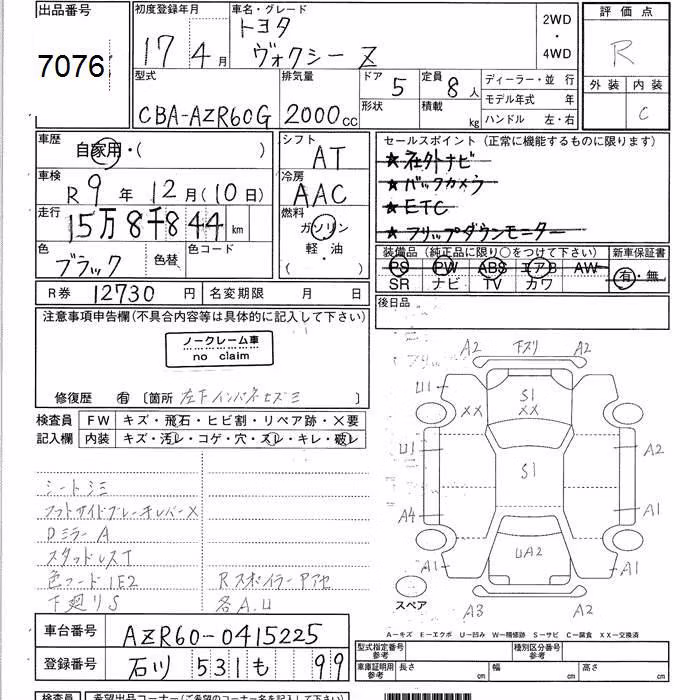 出品番号
7076
初度登録年月
17年4月
車名・グレード
トヨタ
ヴォクシー Z
2WD
・
4WD
評価点
R
外装 内装
C
型式
CBA-AZR60G
排気量
2000cc
ドア 5
形状
定員 8人
積載 kg
ディーラー・並 行
モデル年式 年
ハンドル 左・右
車歴
自家用・( )
車検
R 9年 12月(10日)
走行
15万8千844km
色
ブラック
色替
色コード
シフト
AT
冷房
AAC
燃料
ガソリン
軽・油
( )
セールスポイント (正常に機能するものに限ります)
★社外ナビ
★バックカメラ
★ETC
★フリップダウンモニター
装備品 (純正品に限り○をつけて下さい)
PS PW ABS エアB AW
SR ナビ TV カワ
新車保証書
有・無
R券 12730円
名変期限 月 日
後日品
注意事項申告欄(不具合内容等は具体的に記入して下さい)
ノークレーム車
no claim
修復歴 有 〔箇所 左下インパネヒズミ 〕
検査員
記入欄
FW キズ・飛石・ヒビ割・リペア跡・×要
内装 キズ・汚レ・コゲ・穴・スレ・キレ・破レ
シートシミ
フットサイドブレーキレバーX
Dミラー A
スタッドレスT
色コード1E2
下廻りS
Rスポイラー Pアセ
各A.U
A2 下スリ A2
U1
XX
S1
XX
U1
S1
A2
A4
A1
A1
UA2
A1
スペア
A3
A2
A―キズ E―エクボ U―凹み W―補修跡 S―サビ C―腐食 XX―交換済
車台番号 AZR60-0415225
登録番号 石川 531 も 99
型式指定番号
参考
種別区分番号
参考
車庫証明用
参考
長さ cm
幅 cm
高さ cm
検査員
希望出品コーナー(ご希望のコーナー名を記入下さい)